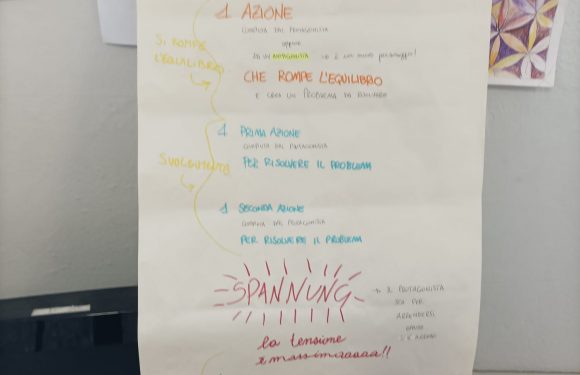 1 AZIONE
COMPIUTA DAL PROTAGONISTA
oppure
DA UN ANTAGONISTA (è un nuovo personaggio!
CHE ROMPE L'EQUILIBRIO
E CREA UN PROBLEMA DA RISOLVERE
SI ROMPE
L'EQUILIBRIO
1 PRIMA AZIONE
COMPIUTA DAL PROTAGONISTA
PER RISOLVERE IL PROBLEMA
SVOLGIMENTO
1 SECONDA AZIONE
COMPIUTA DAL PROTAGONISTA
PER RISOLVERE IL PROBLEMA
SPANNUNG
la tensione
è massimaaaaa!!
IL PROTAGONISTA
STA PER
ARRENDERSI